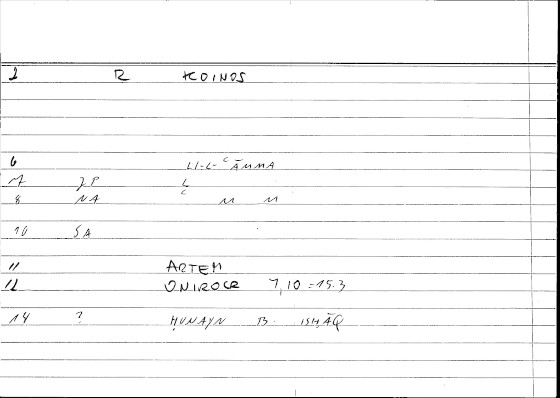 2 R KOINOS
6 LI-L-ʿĀMMA
7 JP L
8 NA ʿ M M
10 SA
11 ARTEM
12 ONIROCR 7,10 = 15.3
14 ? ḤUNAYN B. ISḤĀQ